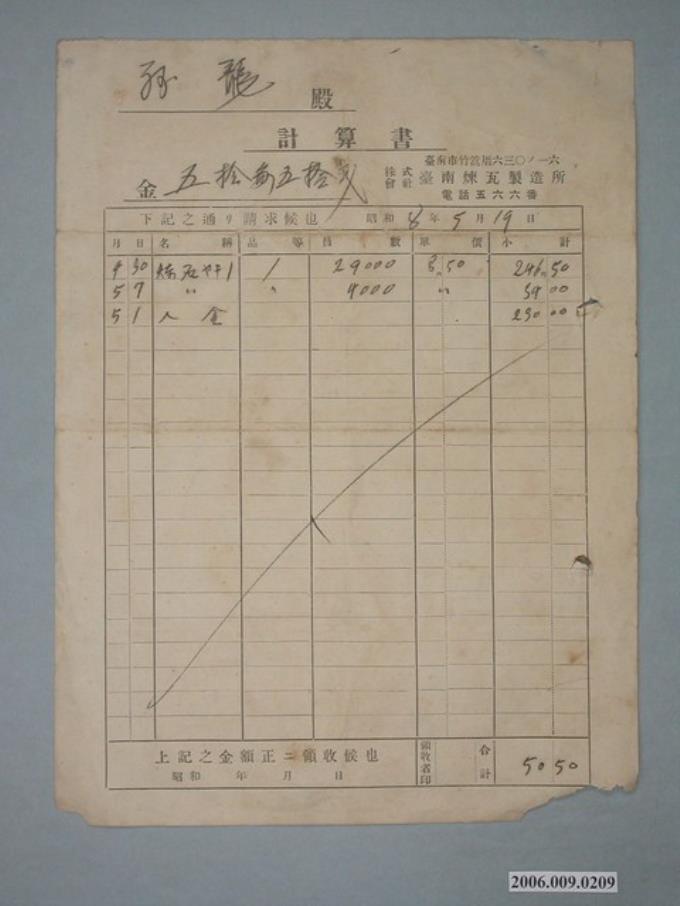 殿
計算書
臺南市竹篙厝六三〇ノ一六
株式會社 臺南煉瓦製造所
電話五六六番
金 五拾 五拾
下記之通リ請求候也 昭和 8 年 5 月 19 日
月 日 名稱 品等 員數 單價 小計
4 30 煉瓦 1 29000 8.50 246.50
5 7 〃 〃 4000 〃 34 00
5 1 入金 230 00
上記之金額正ニ領收候也
昭和 年 月 日
領收者印
合計 50 50
2006.009.0209